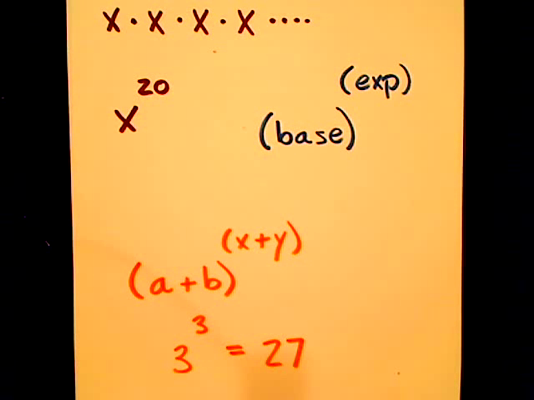 X · X · X · X ····
X^20
(base)^(exp)
(a+b)^(x+y)
3^3 = 27